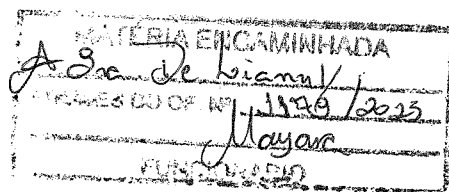 MATÉRIA ENCAMINHADA
A Sra De
ATRAVÉS DO OF. Nº 1179/2023
Mayara
FUNCIONÁRIO